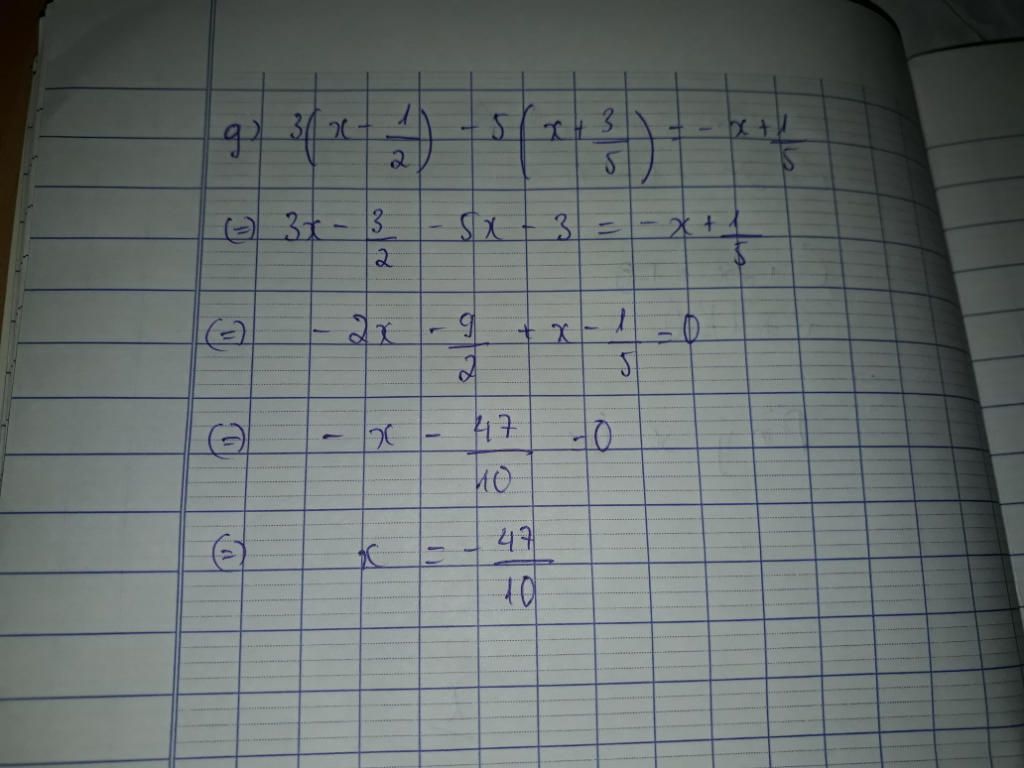 g) 3(x - 1/2) - 5(x + 3/5) = - x + 1/5
(=) 3x - 3/2 - 5x - 3 = - x + 1/5
(=) - 2x - 9/2 + x - 1/5 = 0
(=) - x - 47/10 = 0
(=) x = - 47/10